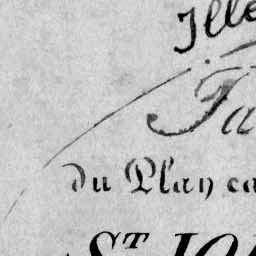 Ille
Ta
du Plan ca
ST JO